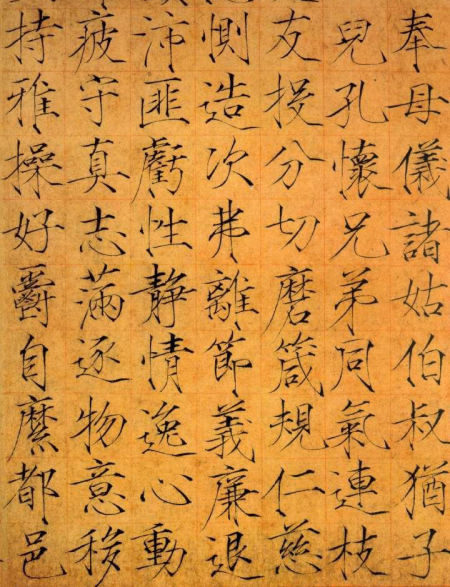 奉母儀諸姑伯叔猶子
兒孔懷兄弟同氣連枝
友投分切磨箴規仁慈
惻造次弗離節義廉退
沛匪虧性靜情逸心動
疲守真志滿逐物意移
持雅操好爵自縻都邑